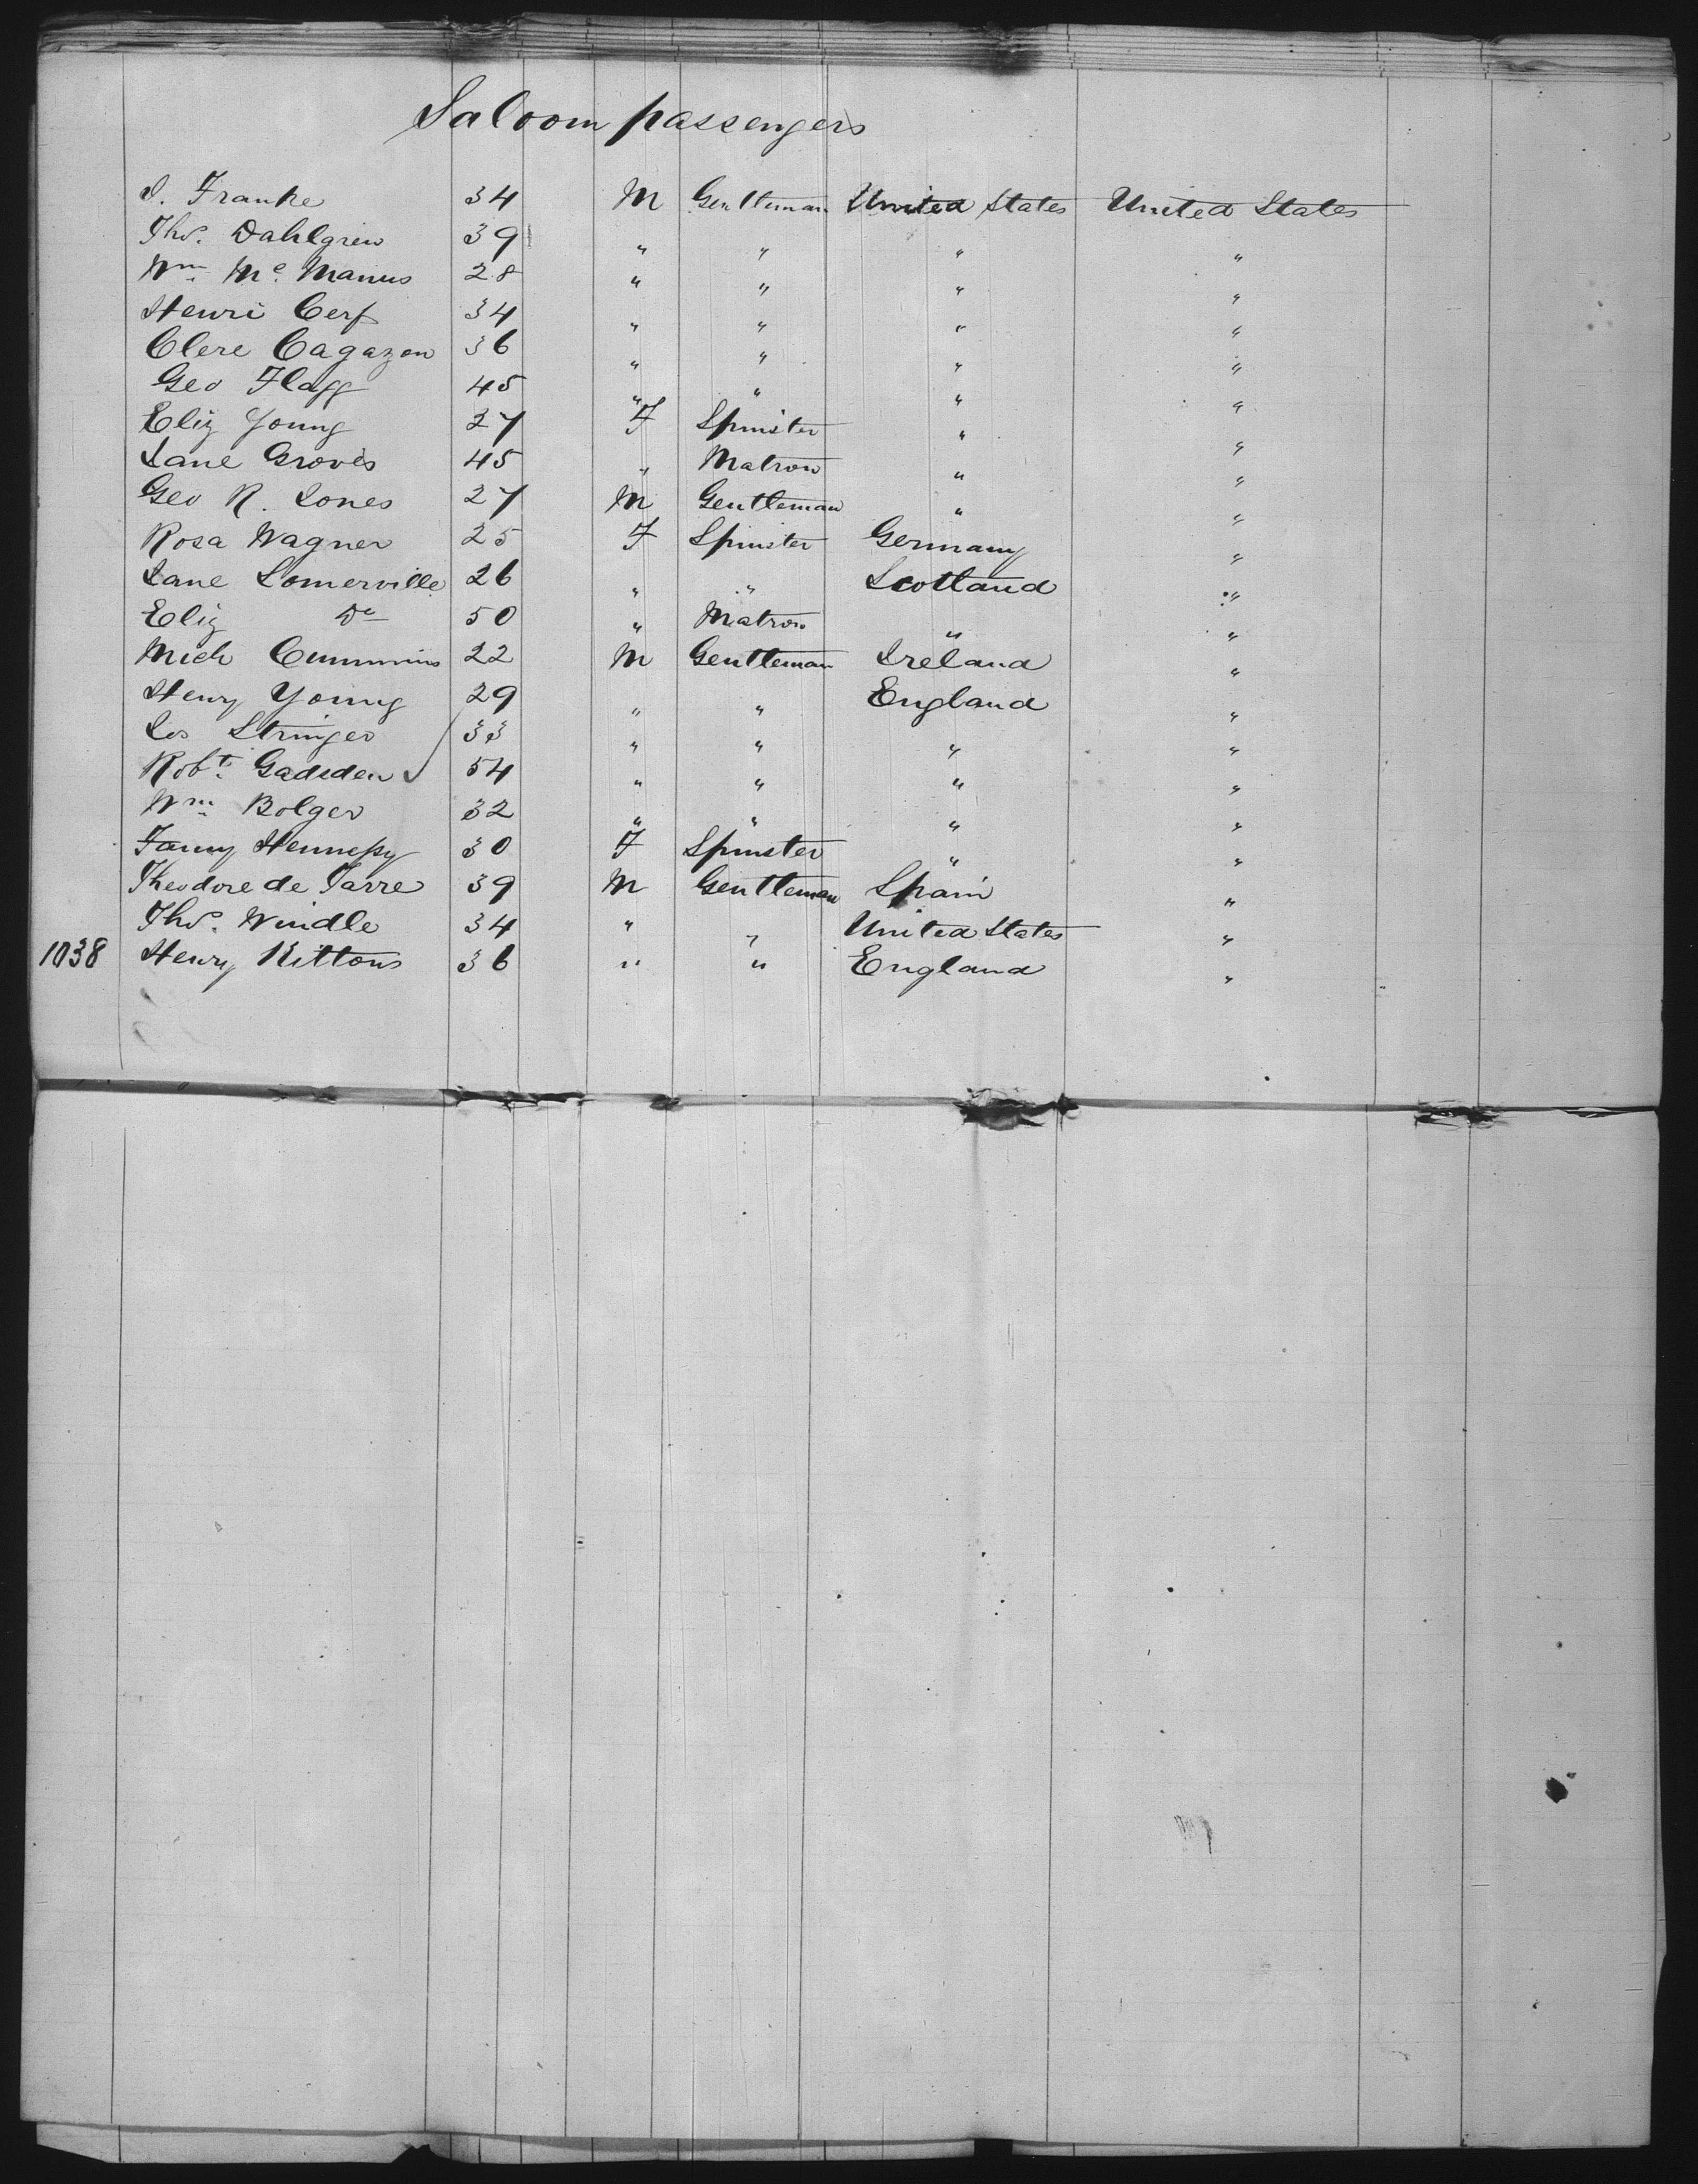 Saloom passengers
S. Franke 34 M Gentleman United States United States
Thos. Dahlgrein 39 " " " "
Wm. Mc. Manus 28 " " " "
Henri Cerf 34 " " " "
Clere Cagazon 36 " " " "
Geo Flagg 45 " " " "
Eliz Young 27 F Spinster " "
Jane Groves 45 " Matron " "
Geo R. Jones 27 M Gentleman " "
Rosa Wagner 25 F Spinster Germany "
Jane Somerville 26 " " Scotland "
Eliz Do 50 " Matron " "
Mich Cummins 22 M Gentleman Ireland "
Henry Young 29 " " England "
Jos Stringer 33 " " " "
Robt. Gadsden 54 " " " "
Wm. Bolger 32 " " " "
Fanny Hennessy 30 F Spinster " "
Theodore de Tarre 39 M Gentleman Spain "
Thos. Windle 34 " " United States "
1038 Henry Kittons 36 " " England "